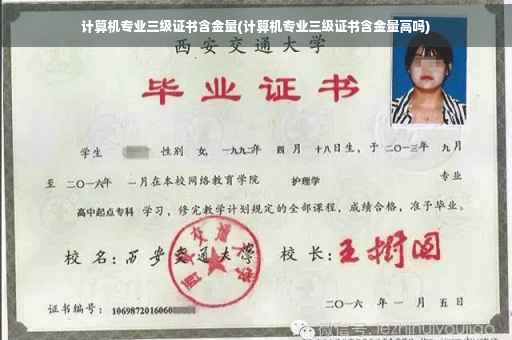 计算机专业三级证书含金量(计算机专业三级证书含金量高吗)
西安交通大学
毕业证书
学生 性别 女, 一九九二年 四 月 十八日生, 于 二〇一三年 九月
至 二〇一六年 一月在本校网络教育学院 护理学 专业
高中起点专科 学习, 修完教学计划规定的全部课程, 成绩合格, 准予毕业。
校 名: 西安交通大学 校 长: 王树国
西安交通大学
证书编号: 1069872016060
二〇一六 年 一 月 五 日
微信号: jezhihuiyoujiao